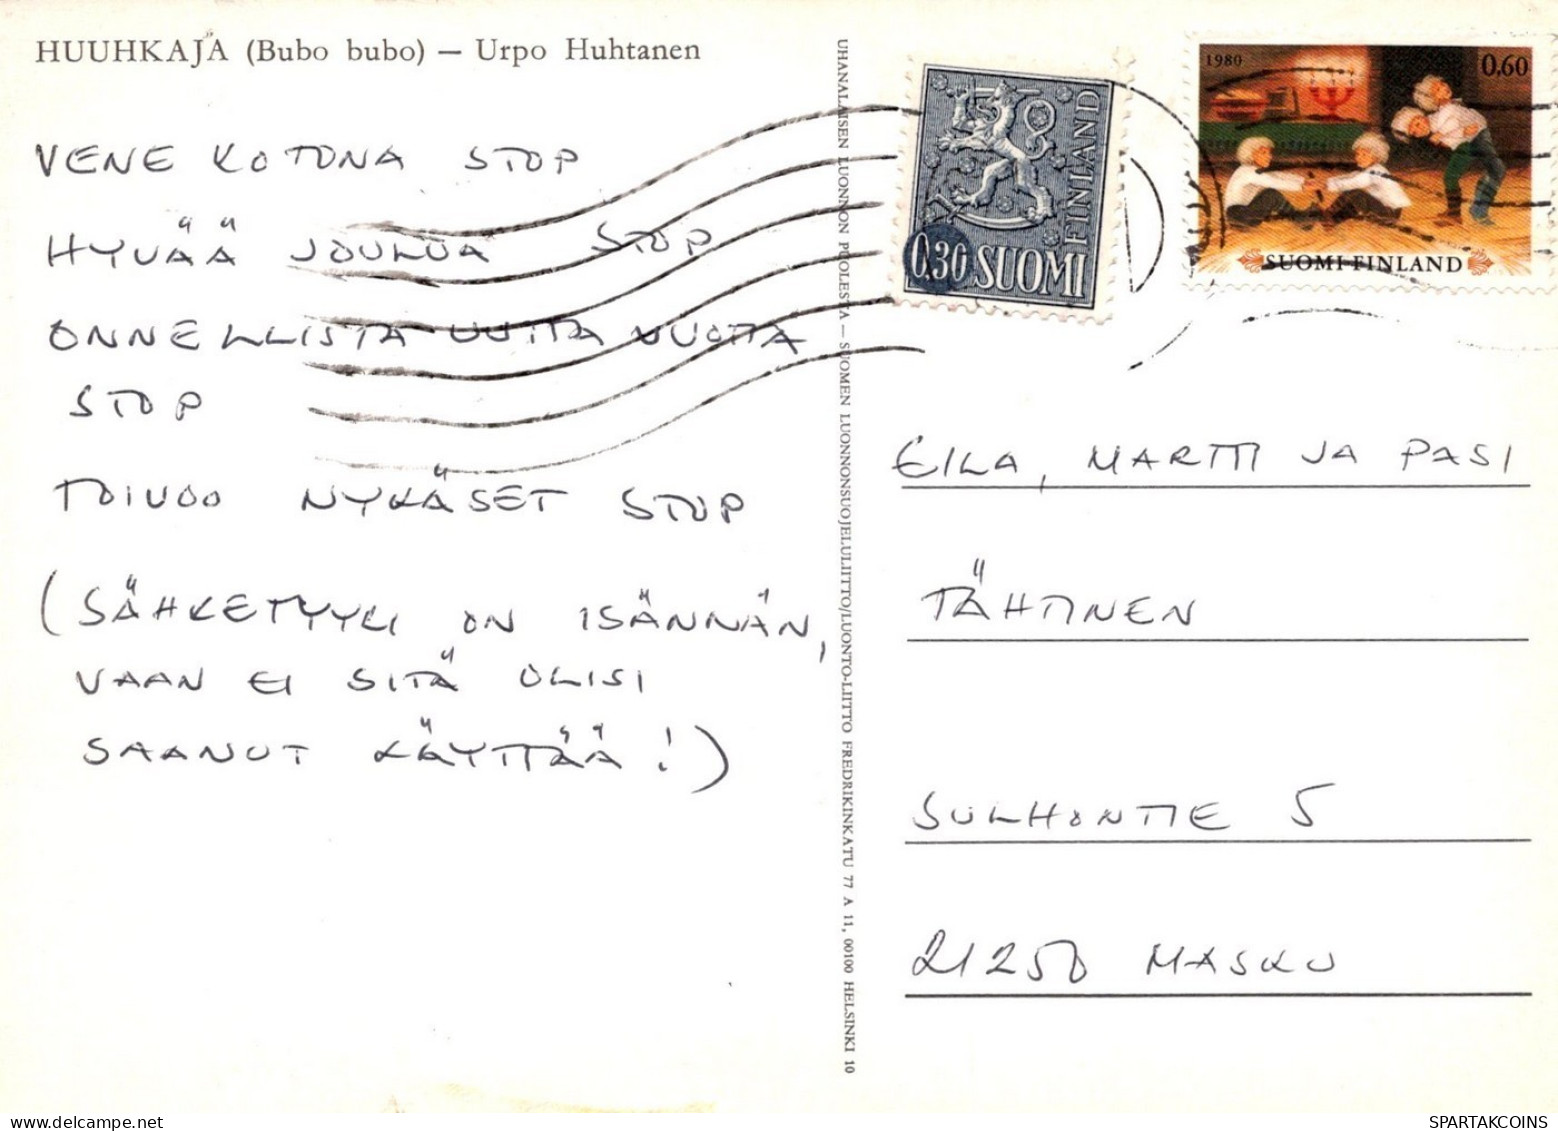 HUUHKAJA (Bubo bubo) — Urpo Huhtanen
VENE KOTONA STOP
HYVÄÄ JOULUA STOP
ONNELLISTA UUTTA VUOTTA
STOP
TOIVOO NYKÄSET STOP
(SÄHKETYYLI ON ISÄNNÄN,
VAAN EI SITÄ OLISI
SAANUT KÄYTTÄÄ!)
UHANALAISEN LUONNON PUOLESTA — SUOMEN LUONNONSUOJELULIITTO/LUONTO-LIITTO FREDRIKINKATU 77 A 11, 00100 HELSINKI 10
FINLAND
0,30 SUOMI
1980
0,60
SUOMI-FINLAND
EILA, MARTTI JA PASI
TÄHTINEN
SULHONTIE 5
21250 MASKU
SPARTAKCOINS
www.delcampe.net